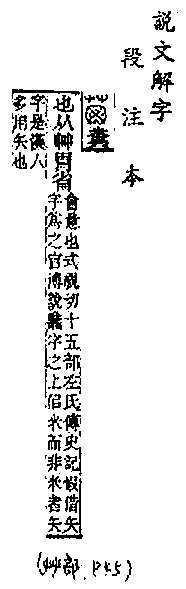 說文解字
段注本
糞
也从艸胃省會意也式視切十五部左氏傳史記假借矢
字爲之官溥說糞字之上佀米而非米者矢
字是漢人
多用矢也
(艸部, P45)